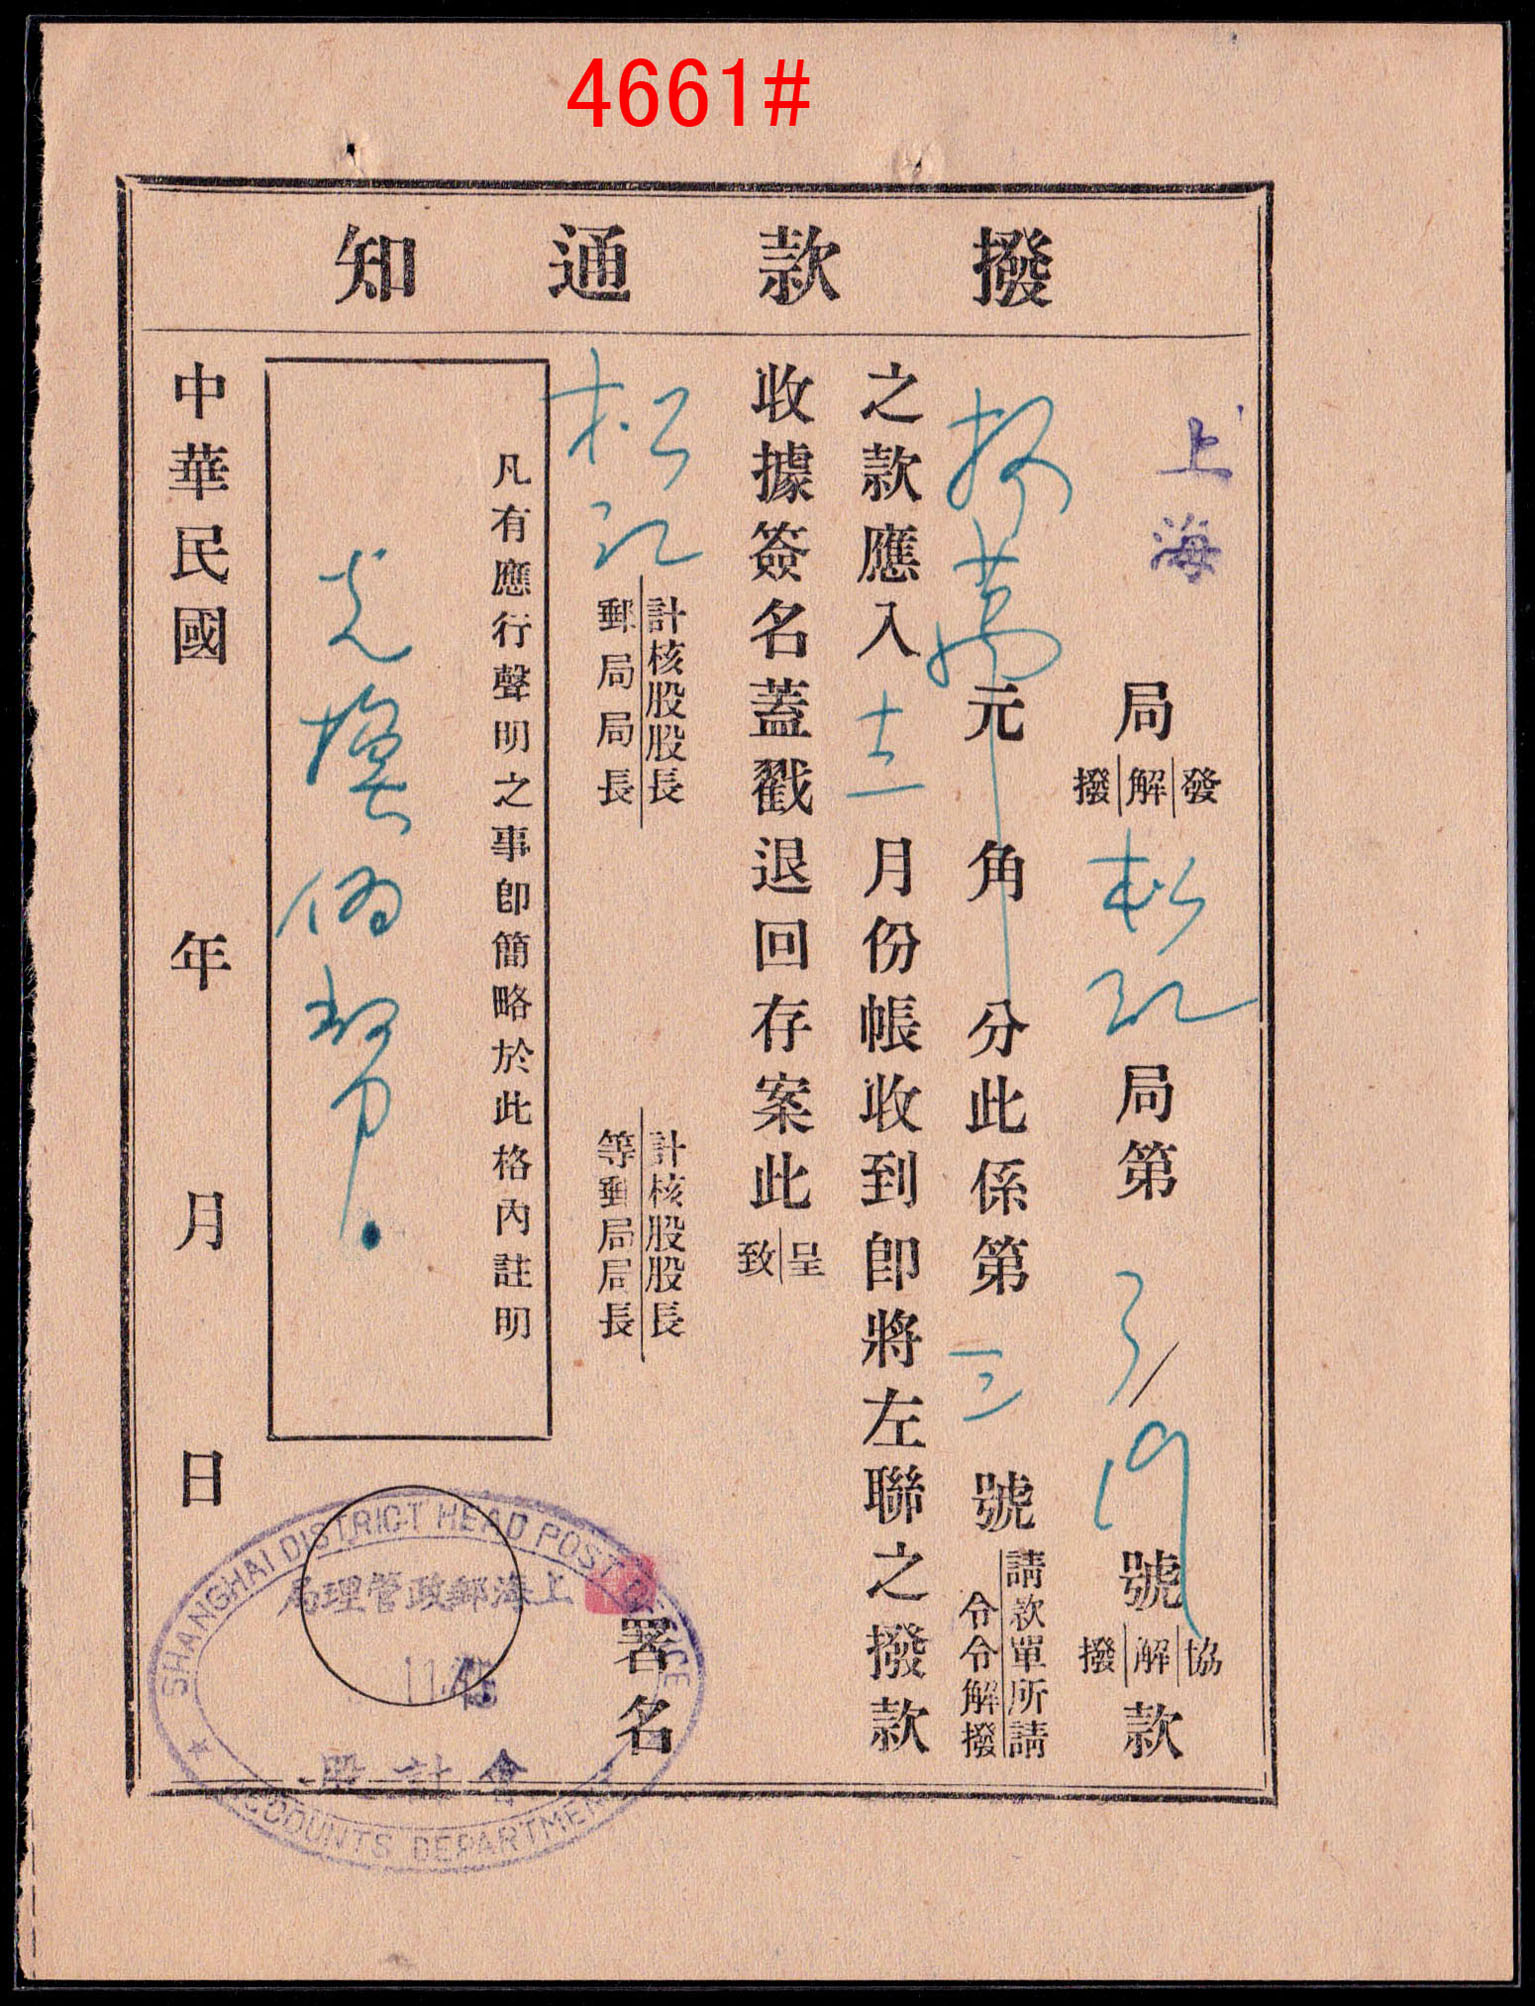 4661#
撥款通知
上海局發解撥松江局第3/19號協解撥款
萬元角分此係第三號請款單所請令令解撥
之款應入十二月份帳收到即將左聯之撥款
收據簽名蓋戳退回存案此呈致
松江計核股股長郵局局長 計核股股長等郵局局長
署名
凡有應行聲明之事即簡略於此格內註明
中華民國 年 月 日
SHANGHAI DISTRICT HEAD POST OFFICE
上海郵政管理局
會計股
ACCOUNTS DEPARTMENT